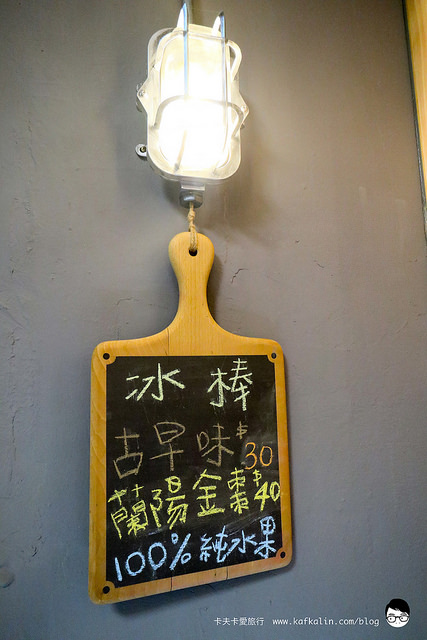 冰棒
古早味$30
蘭陽金棗$40
100%純水果
卡夫卡愛旅行 www.kafkalin.com/blog